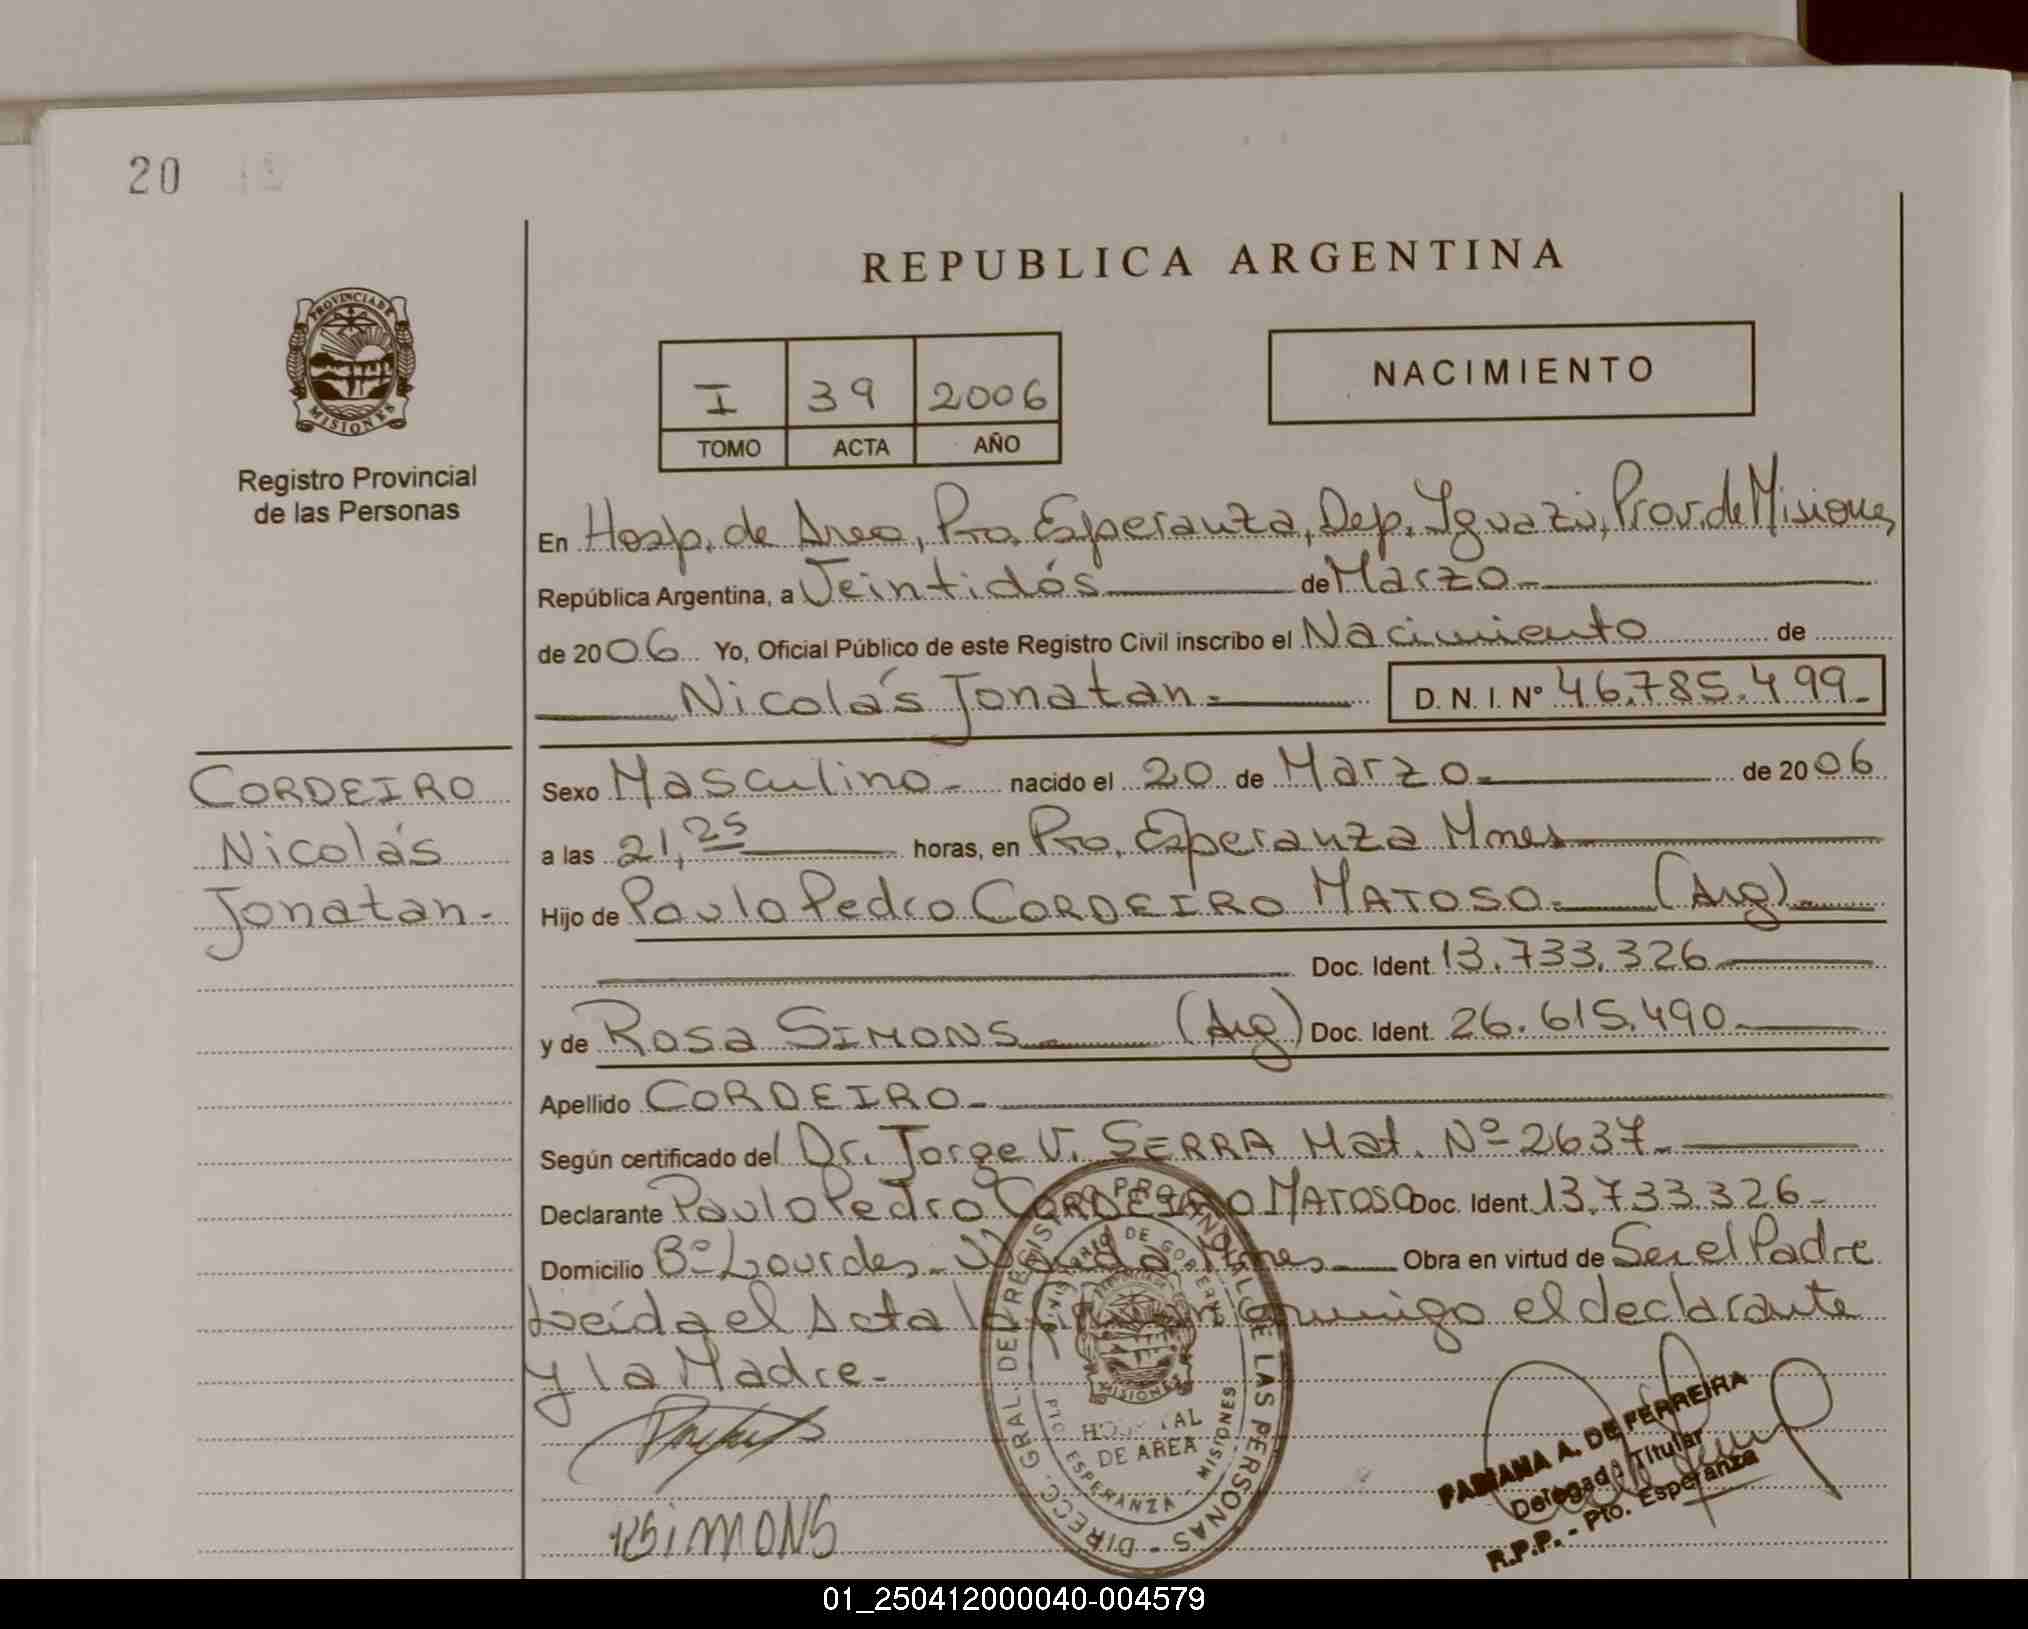 20
REPUBLICA ARGENTINA
PROVINCIA DE
MISIONES
Registro Provincial
de las Personas
I 39 2006
TOMO ACTA AÑO
NACIMIENTO
En Hosp. de Area, Pto. Esperanza, Dep. Iguazú, Prov. de Misiones
República Argentina, a Veintidós de Marzo
de 2006 Yo, Oficial Público de este Registro Civil inscribo el Nacimiento de
Nicolás Jonatan.
D. N. I. Nº 46.785.499.
CORDEIRO
Nicolás
Jonatan.
Sexo Masculino nacido el 20 de Marzo de 2006
a las 21,25 horas, en Pto. Esperanza Mnes
Hijo de Paulo Pedro CORDEIRO MATOSO (Arg)
Doc. Ident. 13.733.326
y de ROSA SIMONS (Arg) Doc. Ident. 26.615.490
Apellido CORDEIRO
Según certificado del Dr. Jorge V. SERRA Mat. Nº 2637
Declarante Paulo Pedro CORDEIRO MATOSO Doc. Ident. 13.733.326
Domicilio Bº Lourdes - Wanda Mnes Obra en virtud de Ser el Padre
Leída el Acta la firman conmigo el declarante
y la Madre.
DIRECC. GRAL. DEL REGISTRO PROVINCIAL DE LAS PERSONAS
MINISTERIO DE GOBIERNO
PROVINCIA DE
MISIONES
HOSPITAL
DE AREA
PTO. ESPERANZA - MISIONES
RSIMONS
FABIANA A. DE FERREIRA
Delegada Titular
R.P.P. - Pto. Esperanza
01_250412000040-004579